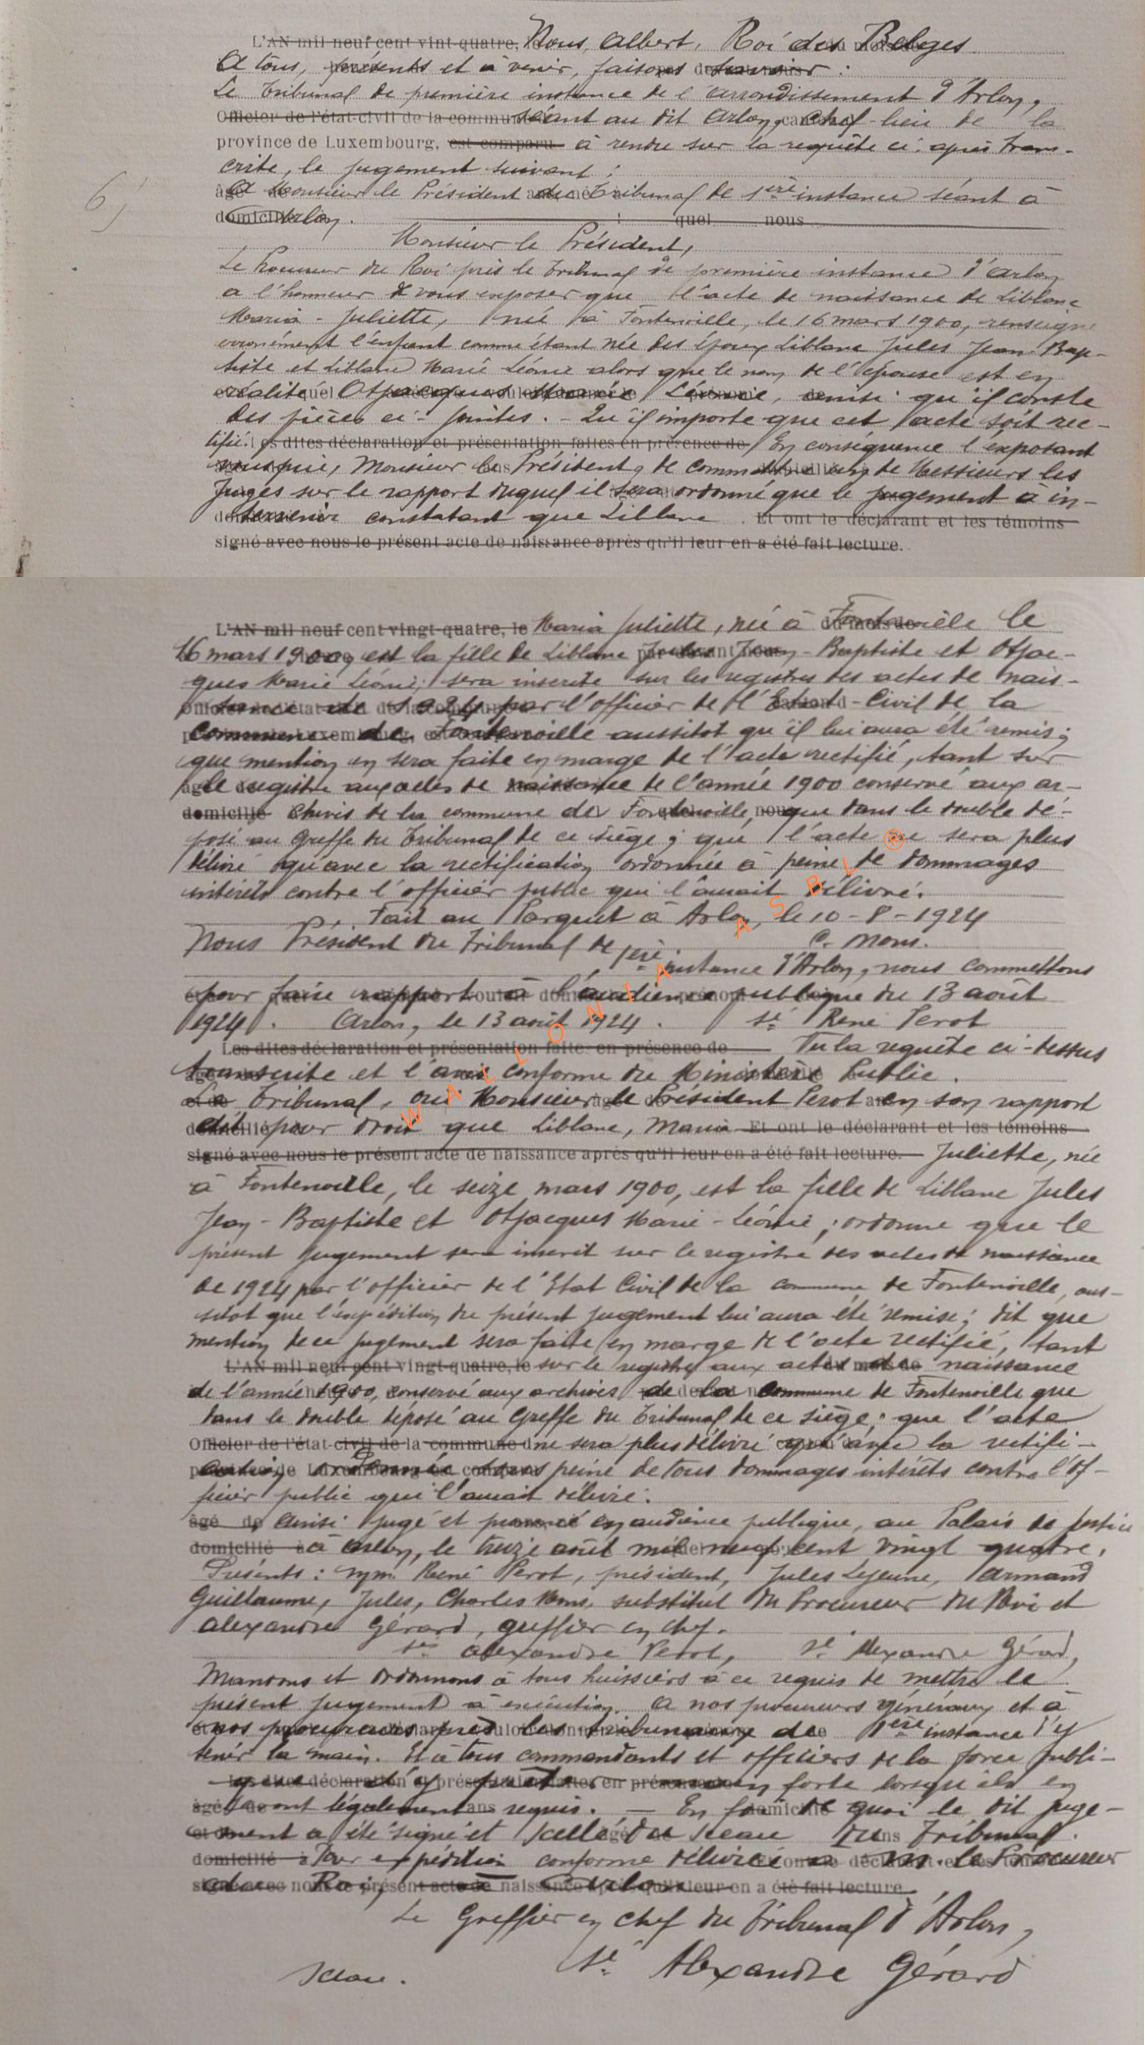 L'AN mil neuf cent vint-quatre, Nous, Albert, Roi des Belges
A tous, présents et à venir, faisons savoir :
Le Tribunal de première instance de l'arrondissement d'Arlon,
Officier de l'état-civil de la commune séant au dit Arlon, chef-lieu de la
province de Luxembourg, est comparu à rendu sur la requête ci-après trans-
crite, le jugement suivant :
6)
âgé de A Monsieur le Président du Tribunal de 1ière instance séant à
domicilié Arlon. quel nous
Monsieur le Président,
Le Procureur du Roi près le Tribunal de première instance d'Arlon
a l'honneur de vous exposer que l'acte de naissance de Liblanc
Maria-Juliette, née à Fontenoille, le 16 mars 1900, renseigne
erronément l'enfant comme étant née des époux Liblanc Jules Jean-Bap-
tiste et Liblanc Marie Léonie alors que le nom de l'épouse est en
réalité Otjacques Marie Léonie, ainsi qu'il conste
des pièces ci-jointes. - Qu'il importe que cet acte soit rec-
tifié. Les dites déclaration et présentation faites en présence de En conséquence l'exposant
requiert, Monsieur le Président, de commettre un de Messieurs les
Juges sur le rapport duquel il sera ordonné que le jugement à in-
tervenir constatant que Liblanc . Et ont le déclarant et les témoins
signé avec nous le présent acte de naissance après qu'il leur en a été fait lecture.
L'AN mil neuf cent vingt-quatre, le Maria Juliette, née à Fontenoille le
16 mars 1900, est la fille de Liblanc Jules Jean-Baptiste et Otjac-
ques Marie Léonie; sera inscrite sur les registres des actes de nais-
sance de 1924 par l'officier de l'Etat-Civil de la
commune de Fontenoille aussitôt qu'il lui aura été remis;
que mention en sera faite en marge de l'acte rectifié, tant sur
le registre aux actes de naissance de l'année 1900 conservé aux ar-
domicilié chives de la commune de Fontenoille, que dans le double dé-
posé au Greffe du Tribunal de ce siège; que l'acte ne sera plus
délivré qu'avec la rectification ordonnée à peine de dommages
intérêts contre l'officier public qui l'aurait délivré.
Fait au Parquet à Arlon, le 10-8-1924
Nous Président du Tribunal de C. Mons.
1ière instance d'Arlon, nous commettons
pour faire rapport à l'audience publique du 13 août
1924. Arlon, le 13 août 1924. sé René Perot
Les dites déclaration et présentation faites en présence de Vu la requête ci-dessus
transcrite et l'avis conforme du Ministère Public.
Le Tribunal, oui Monsieur le Président Perot en son rapport
dit pour droit que Liblanc, Maria Et ont le déclarant et les témoins
signé avec nous le présent acte de naissance après qu'il leur en a été fait lecture. Juliette, née
à Fontenoille, le seize mars 1900, est la fille de Liblanc Jules
Jean-Baptiste et Otjacques Marie-Léonie; ordonne que le
présent jugement sera inscrit sur le registre des actes de naissance
de 1924 par l'officier de l'Etat Civil de la commune de Fontenoille, aus-
sitôt que l'expédition du présent jugement lui aura été remise; dit que
mention de ce jugement sera faite en marge de l'acte rectifié, tant
L'AN mil neuf cent vingt-quatre, le sur le registre aux actes de naissance
de l'année 1900, conservé aux archives de la commune de Fontenoille que
dans le double déposé au Greffe du Tribunal de ce siège; que l'acte
Officier de l'état-civil de la commune d ne sera plus délivré qu'avec la rectifi-
cation ordonnée sous peine de tous dommages intérêts contre l'of-
ficier public qui l'aurait délivré.
âgé de Ainsi jugé et prononcé en audience publique, au Palais de Justice
domicilié à à Arlon, le treize août mil neuf cent vingt quatre.
Présents : MM. René Perot, président, Jules Lejeune, Armand
Guillaume, Jules, Charles Mons, substitut du Procureur du Roi et
Alexandre Gérard, greffier en chef.
sés Alexandre Perot, sé Alexandre Gérard,
Mandons et ordonnons à tous huissiers à ce requis de mettre le
présent jugement à exécution. A nos procureurs généraux et à
nos procureurs près les tribunaux de 1ère instance d'y
tenir la main. Et à tous commandants et officiers de la force publi-
que d'y prêter main forte lorsqu'ils en
âgé de seront légalement requis. - En foi de quoi le dit juge-
ment a été signé et scellé du sceau du Tribunal.
domicilié à Pour expédition conforme délivrée à M. le Procureur
du Roi, à Arlon.
Le Greffier en chef du Tribunal d'Arlon,
Sceau. sé Alexandre Gérard
WALLONIA ASBL ®